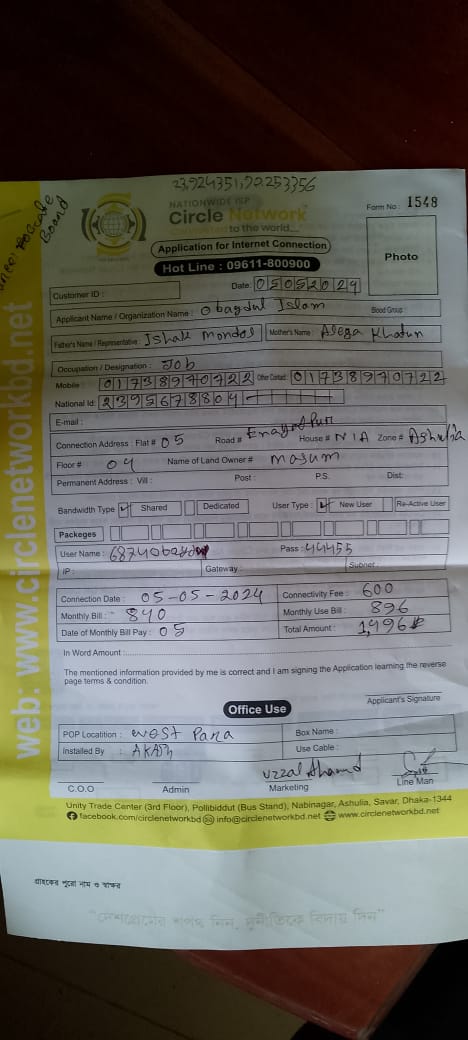 23.924351,90.253356
NATIONWIDE ISP
Circle Network
Connected to the world...
Form No : 1548
Application for Internet Connection
Hot Line : 09611-800900
Photo
Customer ID :
Date: 05052024
Applicant Name / Organization Name : Obaydul Islam Blood Group :
Father's Name / Representative : Ishak Mondol Mother's Name : Alega Khatun
Occupation / Designation : Job
Mobile : 01738970722 Other Contact : 01738970722
National Id: 2395678804
E-mail :
Connection Address : Flat # 05 Road # Enayetpur House # N/A Zone # Ashulia
Floor # 04 Name of Land Owner # Masum
Permanent Address : Vill : Post : P.S. Dist:
Bandwidth Type Shared Dedicated User Type : New User Re-Active User
Packeges
User Name : 6874obaydul Pass : 44455
IP : Gateway : Subnet :
Connection Date : 05-05-2024 Connectivity Fee : 600
Monthly Bill : 840 Monthly Use Bill : 896
Date of Monthly Bill Pay : 05 Total Amount : 1,496
In Word Amount :
The mentioned information provided by me is correct and I am signing the Application learning the reverse
page terms & condition.
Applicant's Signature
Office Use
POP Locatition : West Para Box Name :
Installed By : AKASh Use Cable :
Uzzal Ahamd
C.O.O Admin Marketing Line Man
Unity Trade Center (3rd Floor), Pollibiddut (Bus Stand), Nabinagar, Ashulia, Savar, Dhaka-1344
facebook.com/circlenetworkbd info@circlenetworkbd.net www.circlenetworkbd.net
web: www.circlenetworkbd.net
Board
গ্রাহকের পুরো নাম ও স্বাক্ষর
"দেশপ্রেমের শপথ নিন, দুর্নীতিকে বিদায় দিন"